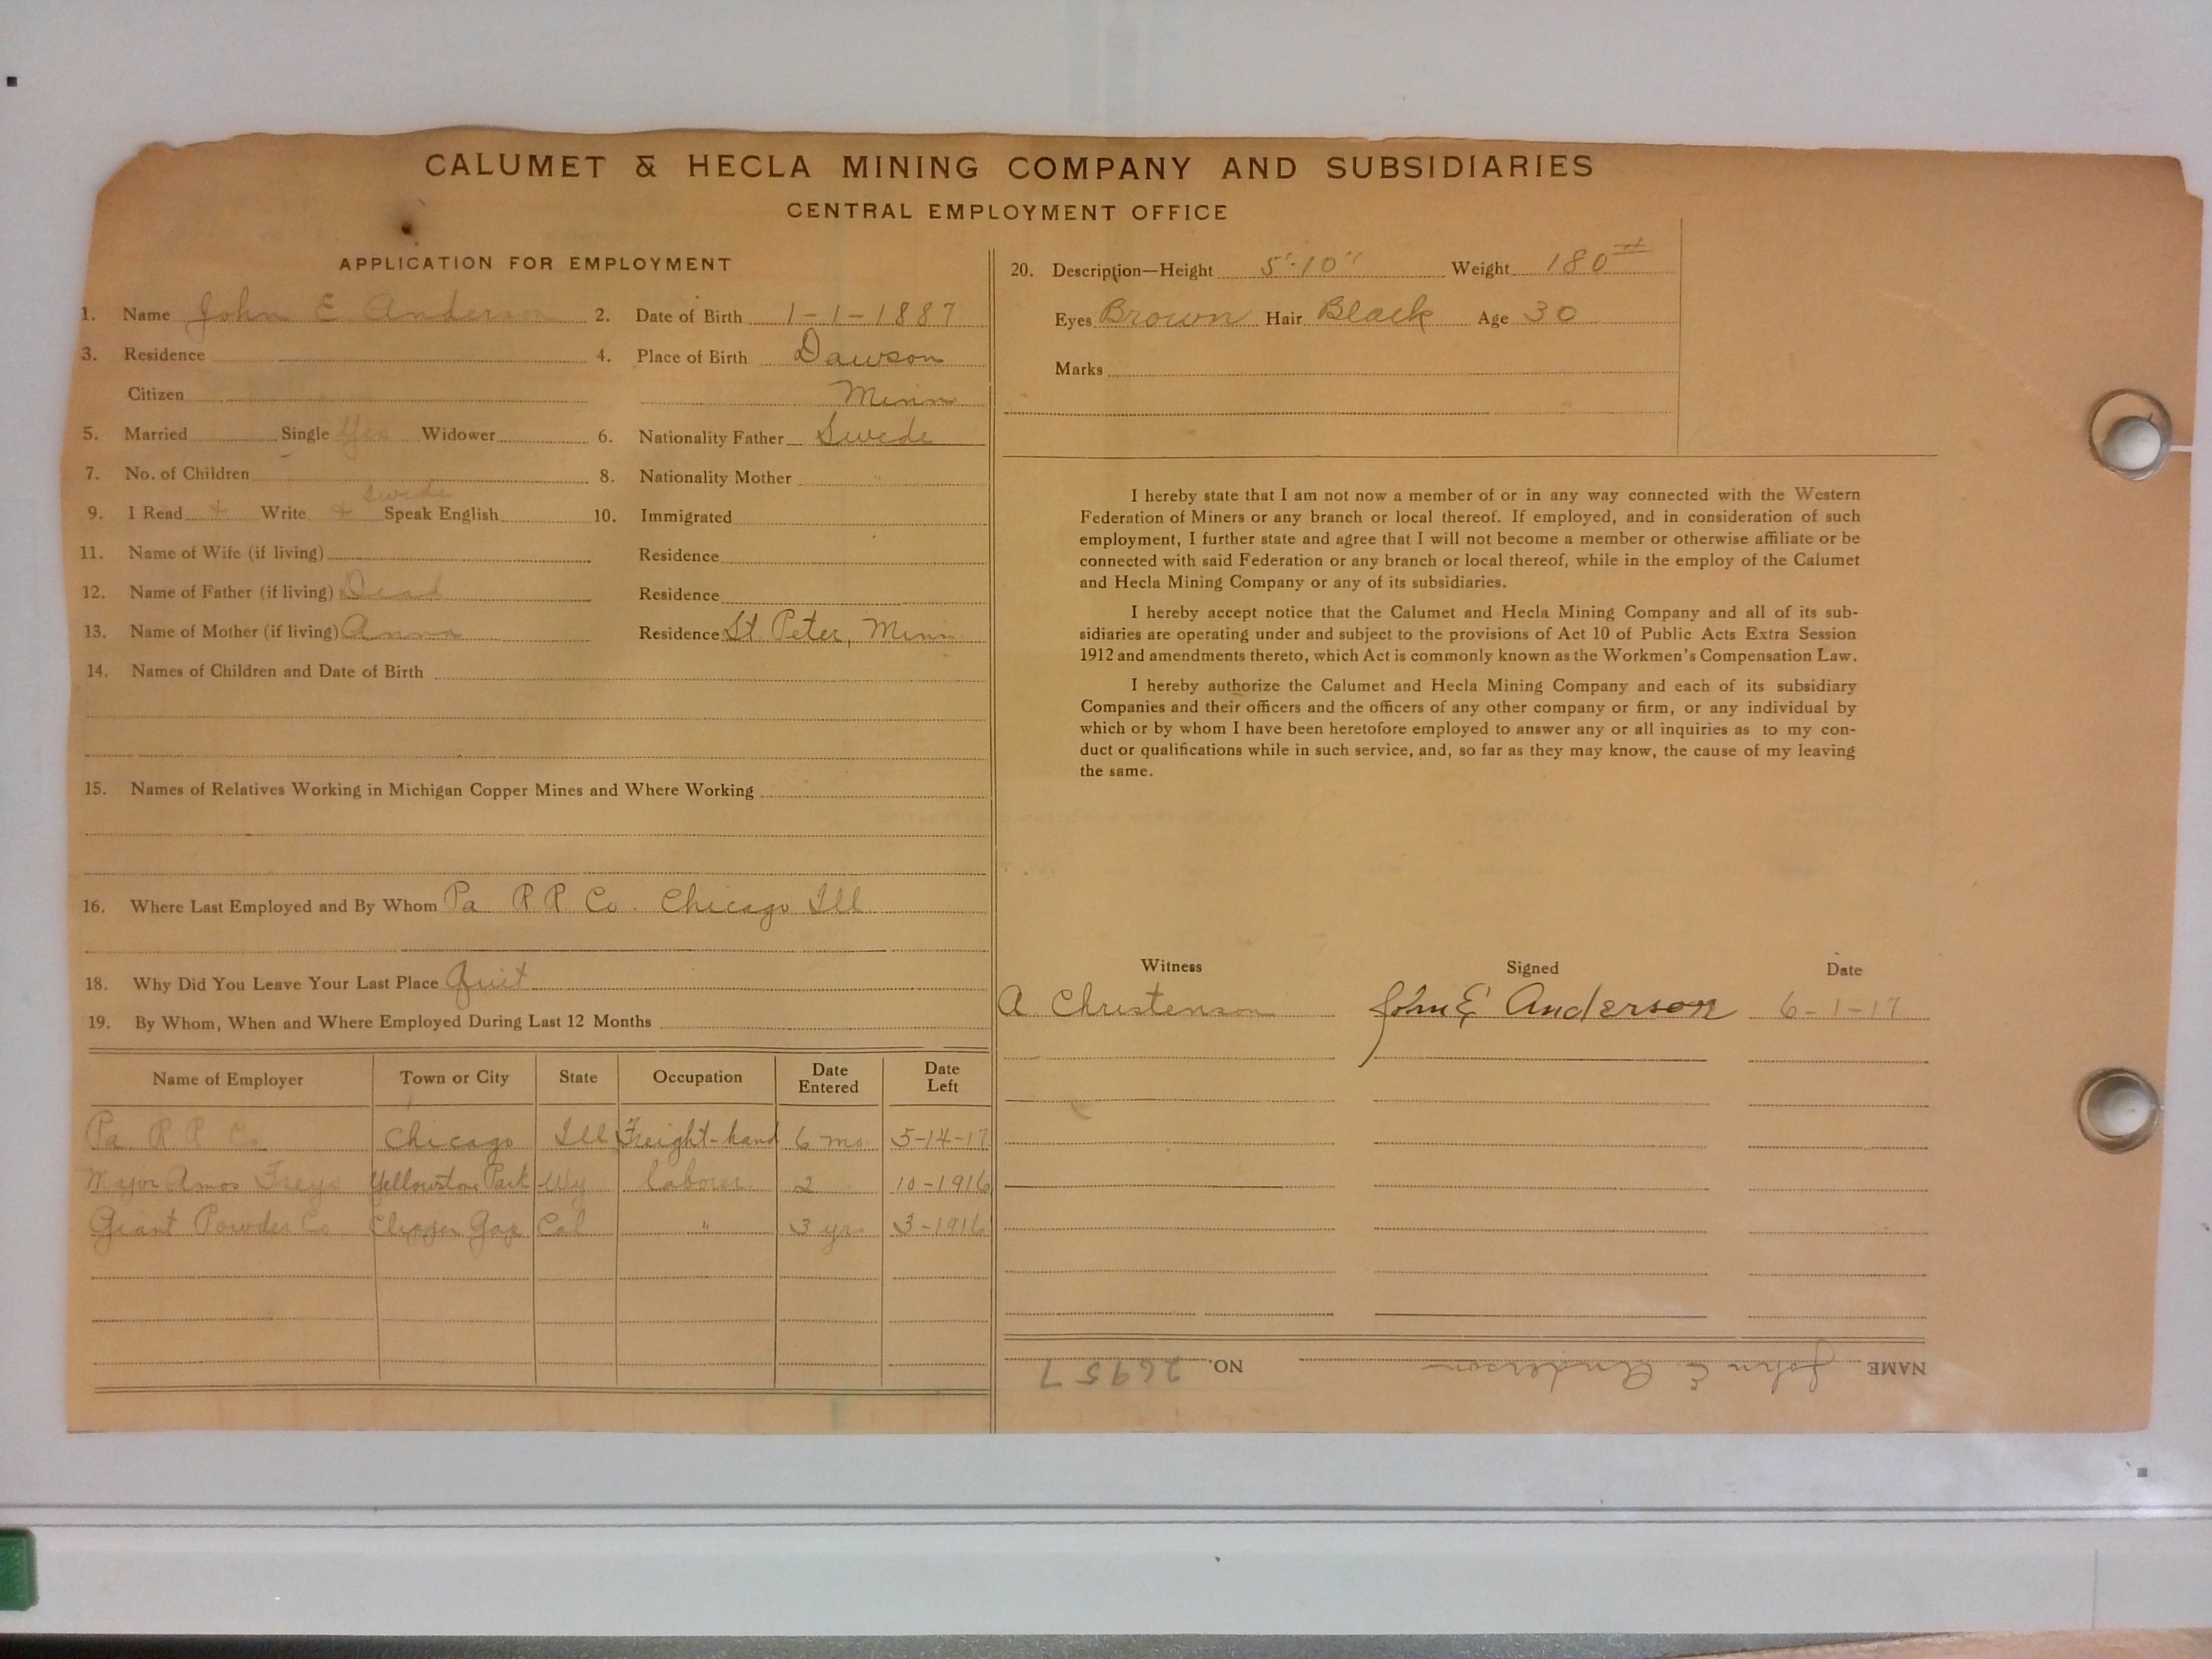 CALUMET & HECLA MINING COMPANY AND SUBSIDIARIES
CENTRAL EMPLOYMENT OFFICE
APPLICATION FOR EMPLOYMENT
1. Name John E Anderson 2. Date of Birth 1-1-1887
3. Residence 4. Place of Birth Dawson
Citizen Minn
5. Married Single Yes Widower 6. Nationality Father Swede
7. No. of Children 8. Nationality Mother
Swede
9. I Read + Write + Speak English 10. Immigrated
11. Name of Wife (if living) Residence
12. Name of Father (if living) Dead Residence
13. Name of Mother (if living) Anna Residence St. Peter, Minn
14. Names of Children and Date of Birth
15. Names of Relatives Working in Michigan Copper Mines and Where Working
16. Where Last Employed and By Whom Pa R R Co. Chicago Ill
18. Why Did You Leave Your Last Place Quit
19. By Whom, When and Where Employed During Last 12 Months
Name of Employer Town or City State Occupation Date Entered Date Left
Pa R R Co Chicago Ill Freight-hand 6 mo 5-14-17
Major Amos Yellowstone Park Wy laborer 2 10-1916
Giant Powder Co Gap Cal " 3 yrs 3-1916
20. Description—Height 5'-10" Weight 180#
Eyes Brown Hair Black Age 30
Marks
I hereby state that I am not now a member of or in any way connected with the Western
Federation of Miners or any branch or local thereof. If employed, and in consideration of such
employment, I further state and agree that I will not become a member or otherwise affiliate or be
connected with said Federation or any branch or local thereof, while in the employ of the Calumet
and Hecla Mining Company or any of its subsidiaries.
I hereby accept notice that the Calumet and Hecla Mining Company and all of its sub-
sidiaries are operating under and subject to the provisions of Act 10 of Public Acts Extra Session
1912 and amendments thereto, which Act is commonly known as the Workmen's Compensation Law.
I hereby authorize the Calumet and Hecla Mining Company and each of its subsidiary
Companies and their officers and the officers of any other company or firm, or any individual by
which or by whom I have been heretofore employed to answer any or all inquiries as to my con-
duct or qualifications while in such service, and, so far as they may know, the cause of my leaving
the same.
Witness Signed Date
A. Christenson John E Anderson 6-1-17
NAME John E Anderson NO. 26957